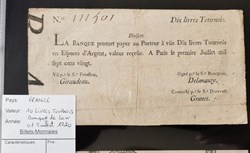 N.º 111501 Dix livres Tournois.
Division
LA BANQUE promet payer au Porteur à vüe Dix livres Tournois
en Especes d'Argent, valeur reçeüe. A Paris le premier Juillet mil
sept cens vingt.
Vû p.r le S.r Fenellon.
Giraudeau.
Signé p.r le S.r Bourgeois.
Delanauze.
Controllé p.r le S.r Durevest.
Granet.
Pays: FRANCE
Valeur: 10 Livres Tournois
Banque de Law
Année: 1 Juillet 1720
Billets-Monnaies
Caractéristiques
Prix: